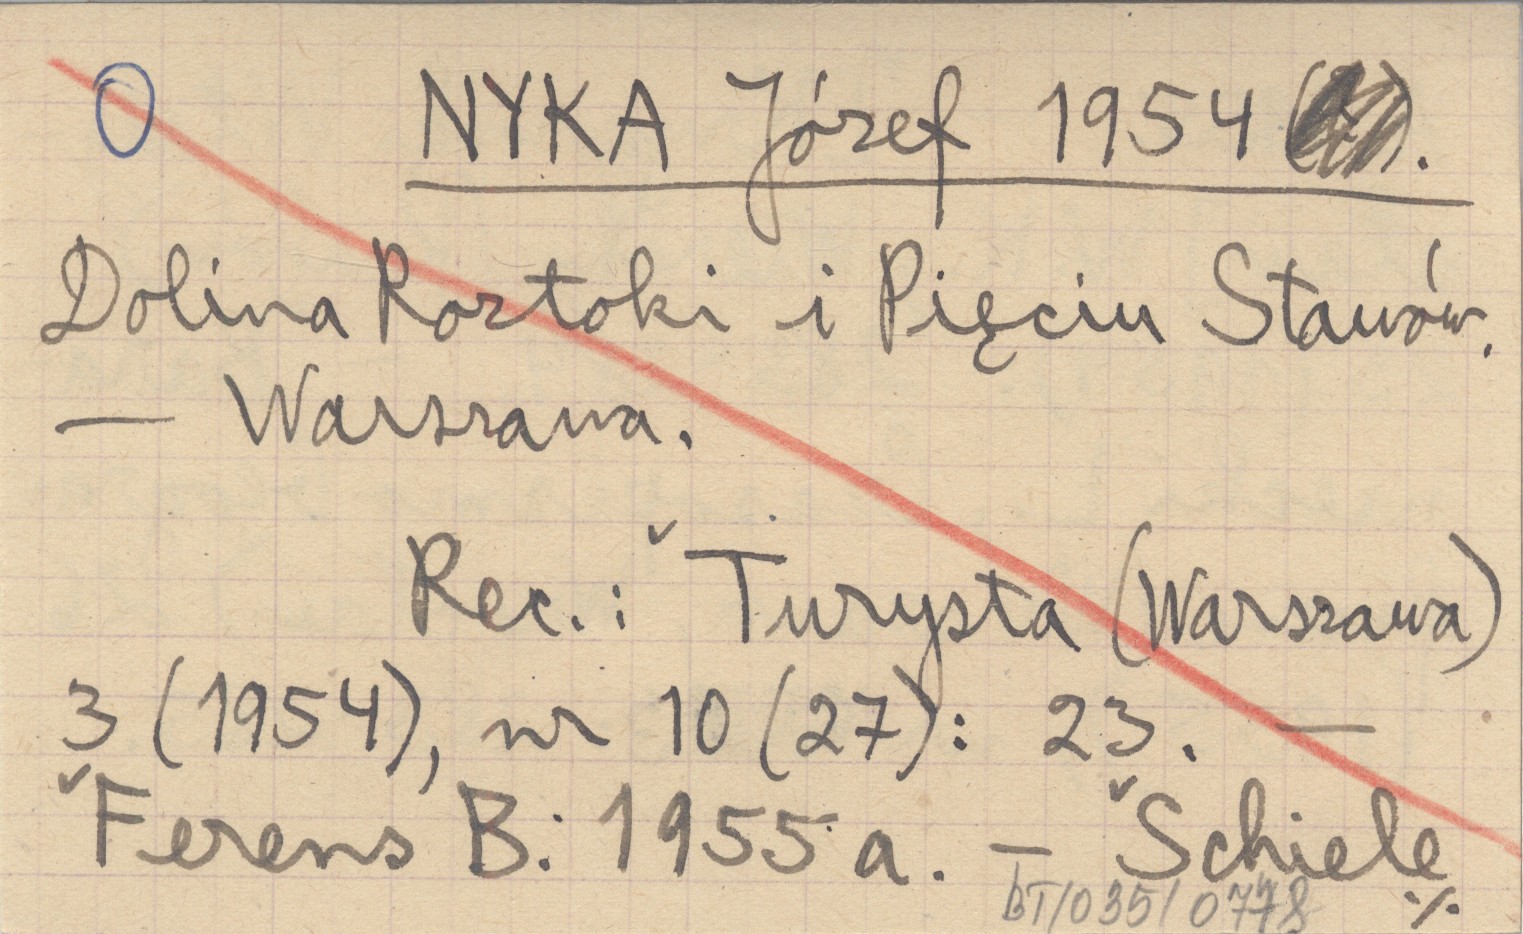 O NYKA Józef 1954.
Dolina Roztoki i Pięciu Stawów.
— Warszawa.
Rec.: ˇTurysta (Warszawa)
3 (1954), nr 10 (27): 23. —
ˇFerens B. 1955 a. — ˇSchiele
BT/035/0778 ·/.